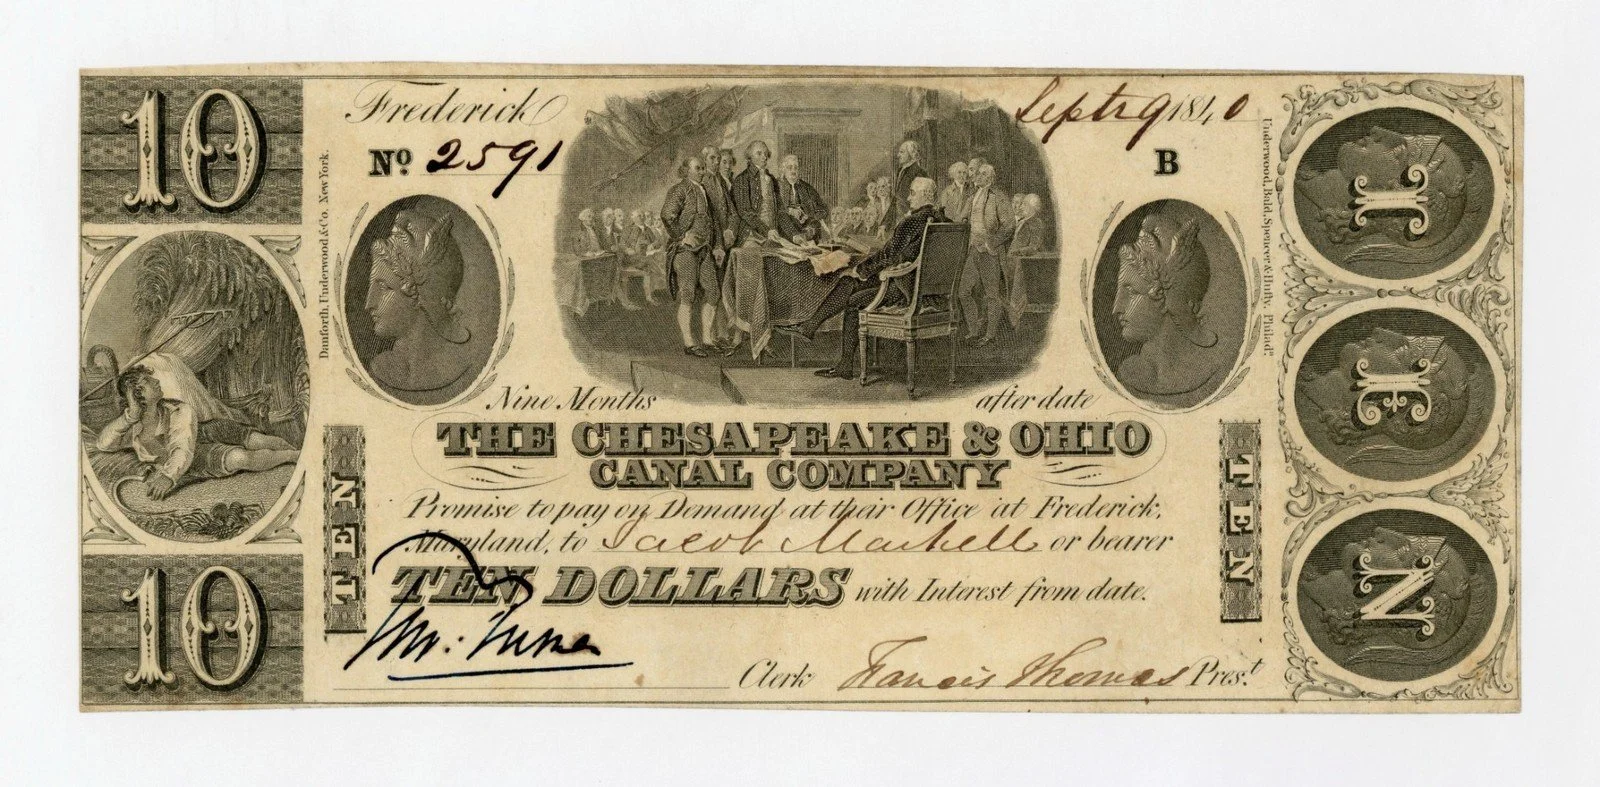 10
Frederick
Septr 9 1840
Nº 2591
B
Danforth, Underwood & Co. New York.
Underwood, Bald, Spencer & Hufty, Philadª.
Nine Months after date
THE CHESAPEAKE & OHIO
CANAL COMPANY
Promise to pay on Demand at their Office at Frederick,
Maryland, to Jacob Markell or bearer
TEN DOLLARS with Interest from date.
Clerk Francis Thomas Pres.t
TEN
TEN
10
T
E
N